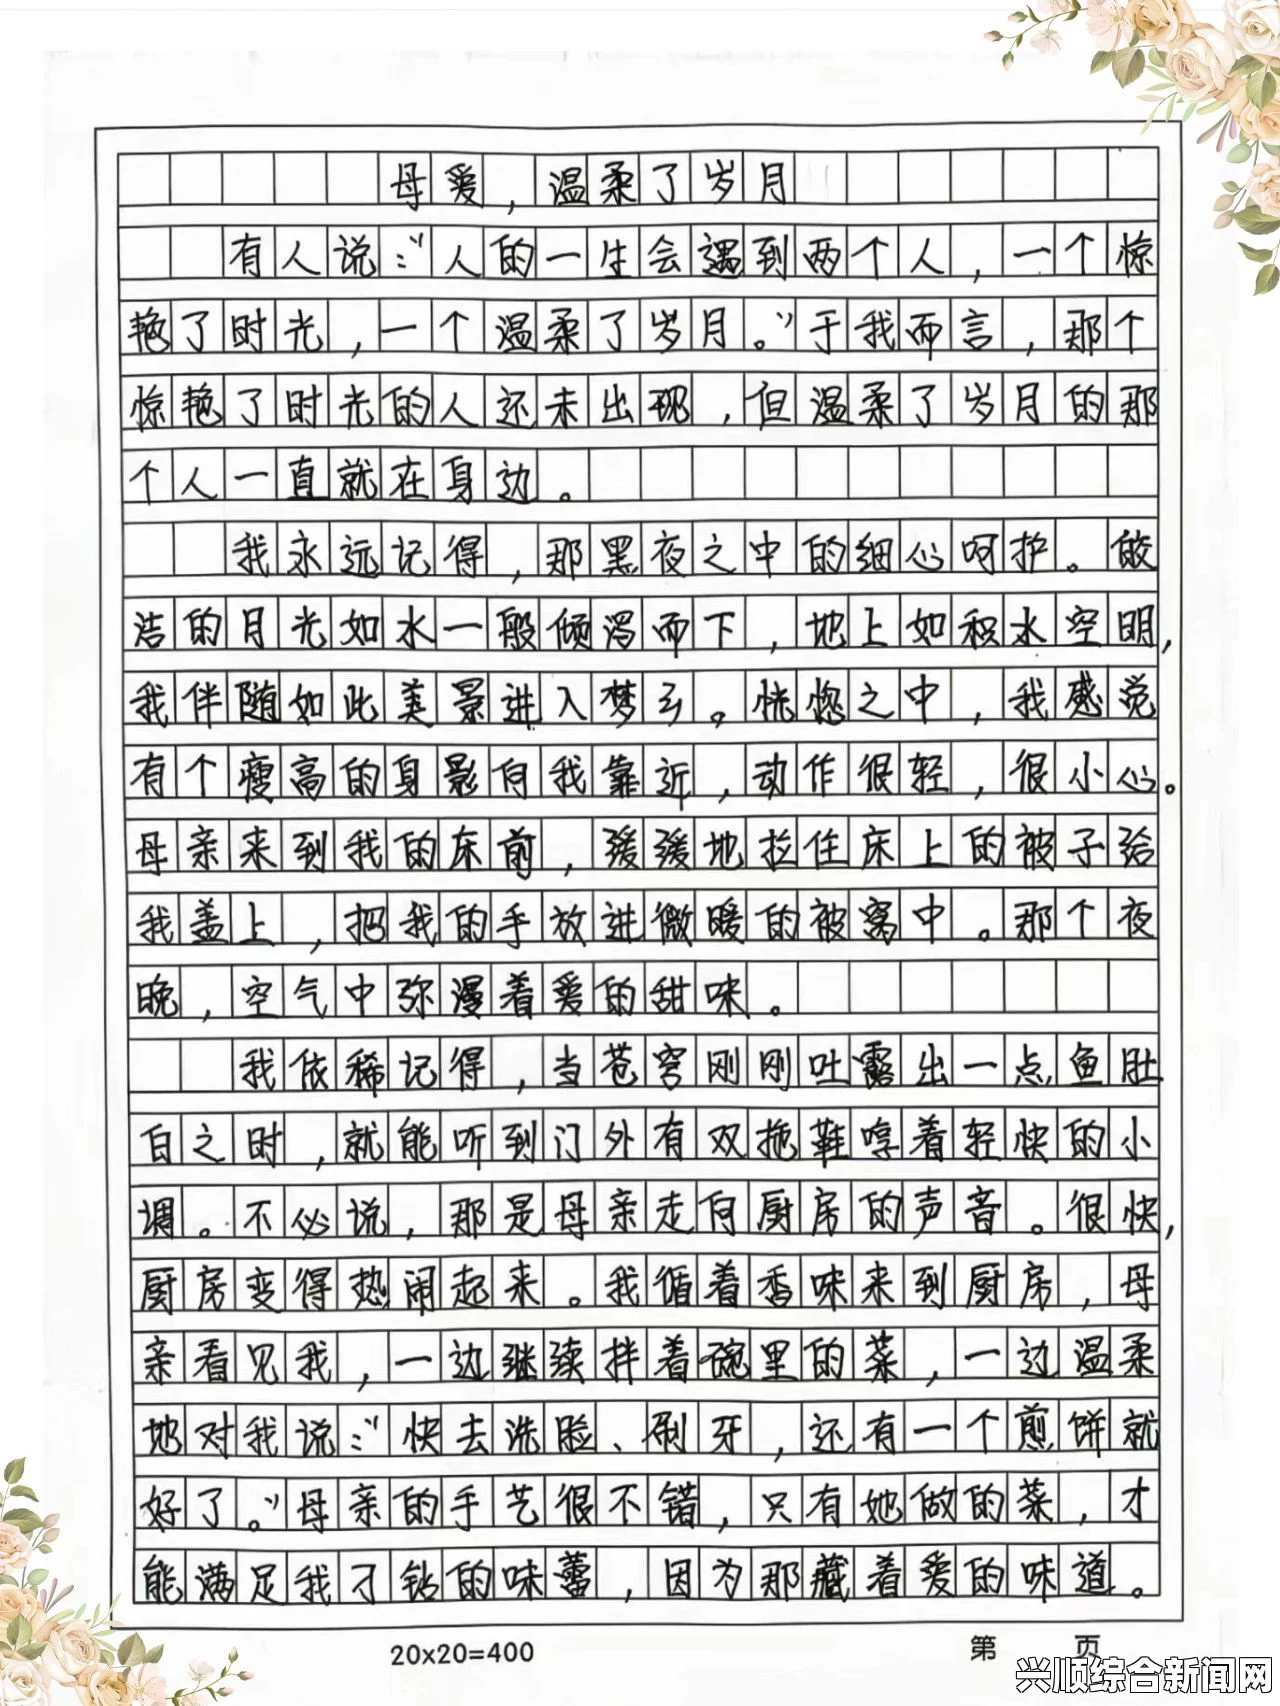 母爱,温柔了岁月
有人说:“人的一生会遇到两个人,一个惊
艳了时光,一个温柔了岁月。”于我而言,那个
惊艳了时光的人还未出现,但温柔了岁月的那
个人一直就在身边。
我永远记得,那黑夜之中的细心呵护。皎
洁的月光如水一般倾泻而下,地上如积水空明,
我伴随如此美景进入梦乡。恍惚之中,我感觉
有个瘦高的身影向我靠近,动作很轻,很小心。
母亲来到我的床前,缓缓地拉住床上的被子给
我盖上,把我的手放进微暖的被窝中。那个夜
晚,空气中弥漫着爱的甜味。
我依稀记得,当苍穹刚刚吐露出一点鱼肚
白之时,就能听到门外有双拖鞋哼着轻快的小
调。不必说,那是母亲走向厨房的声音。很快,
厨房变得热闹起来。我循着香味来到厨房,母
亲看见我,一边继续拌着碗里的菜,一边温柔
地对我说:“快去洗脸、刷牙,还有一个煎饼就
好了。”母亲的手艺很不错,只有她做的菜,才
能满足我刁钻的味蕾,因为那藏着爱的味道。
20×20=400
第 页
兴顺综合新闻网